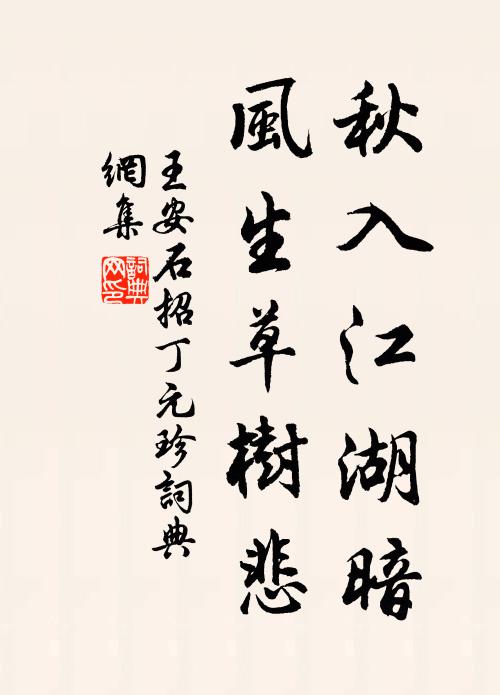 秋入江湖暗
風生草樹悲
王安石招丁元珍詞典
網集
詞典
网印